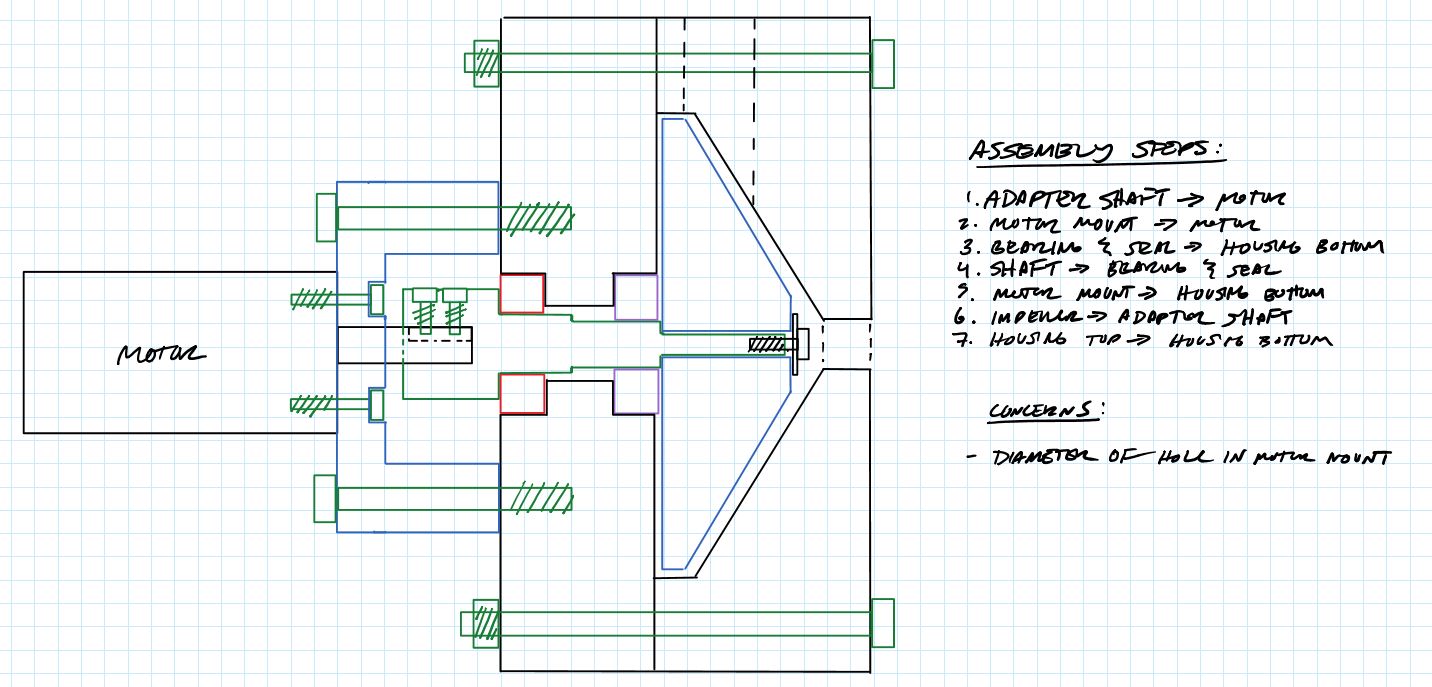 MOTOR
ASSEMBLY STEPS:
1. ADAPTER SHAFT → MOTOR
2. MOTOR MOUNT → MOTOR
3. BEARING & SEAL → HOUSING BOTTOM
4. SHAFT → BEARING & SEAL
5. MOTOR MOUNT → HOUSING BOTTOM
6. IMPELLER → ADAPTOR SHAFT
7. HOUSING TOP → HOUSING BOTTOM
CONCERNS:
- DIAMETER OF HOLE IN MOTOR MOUNT